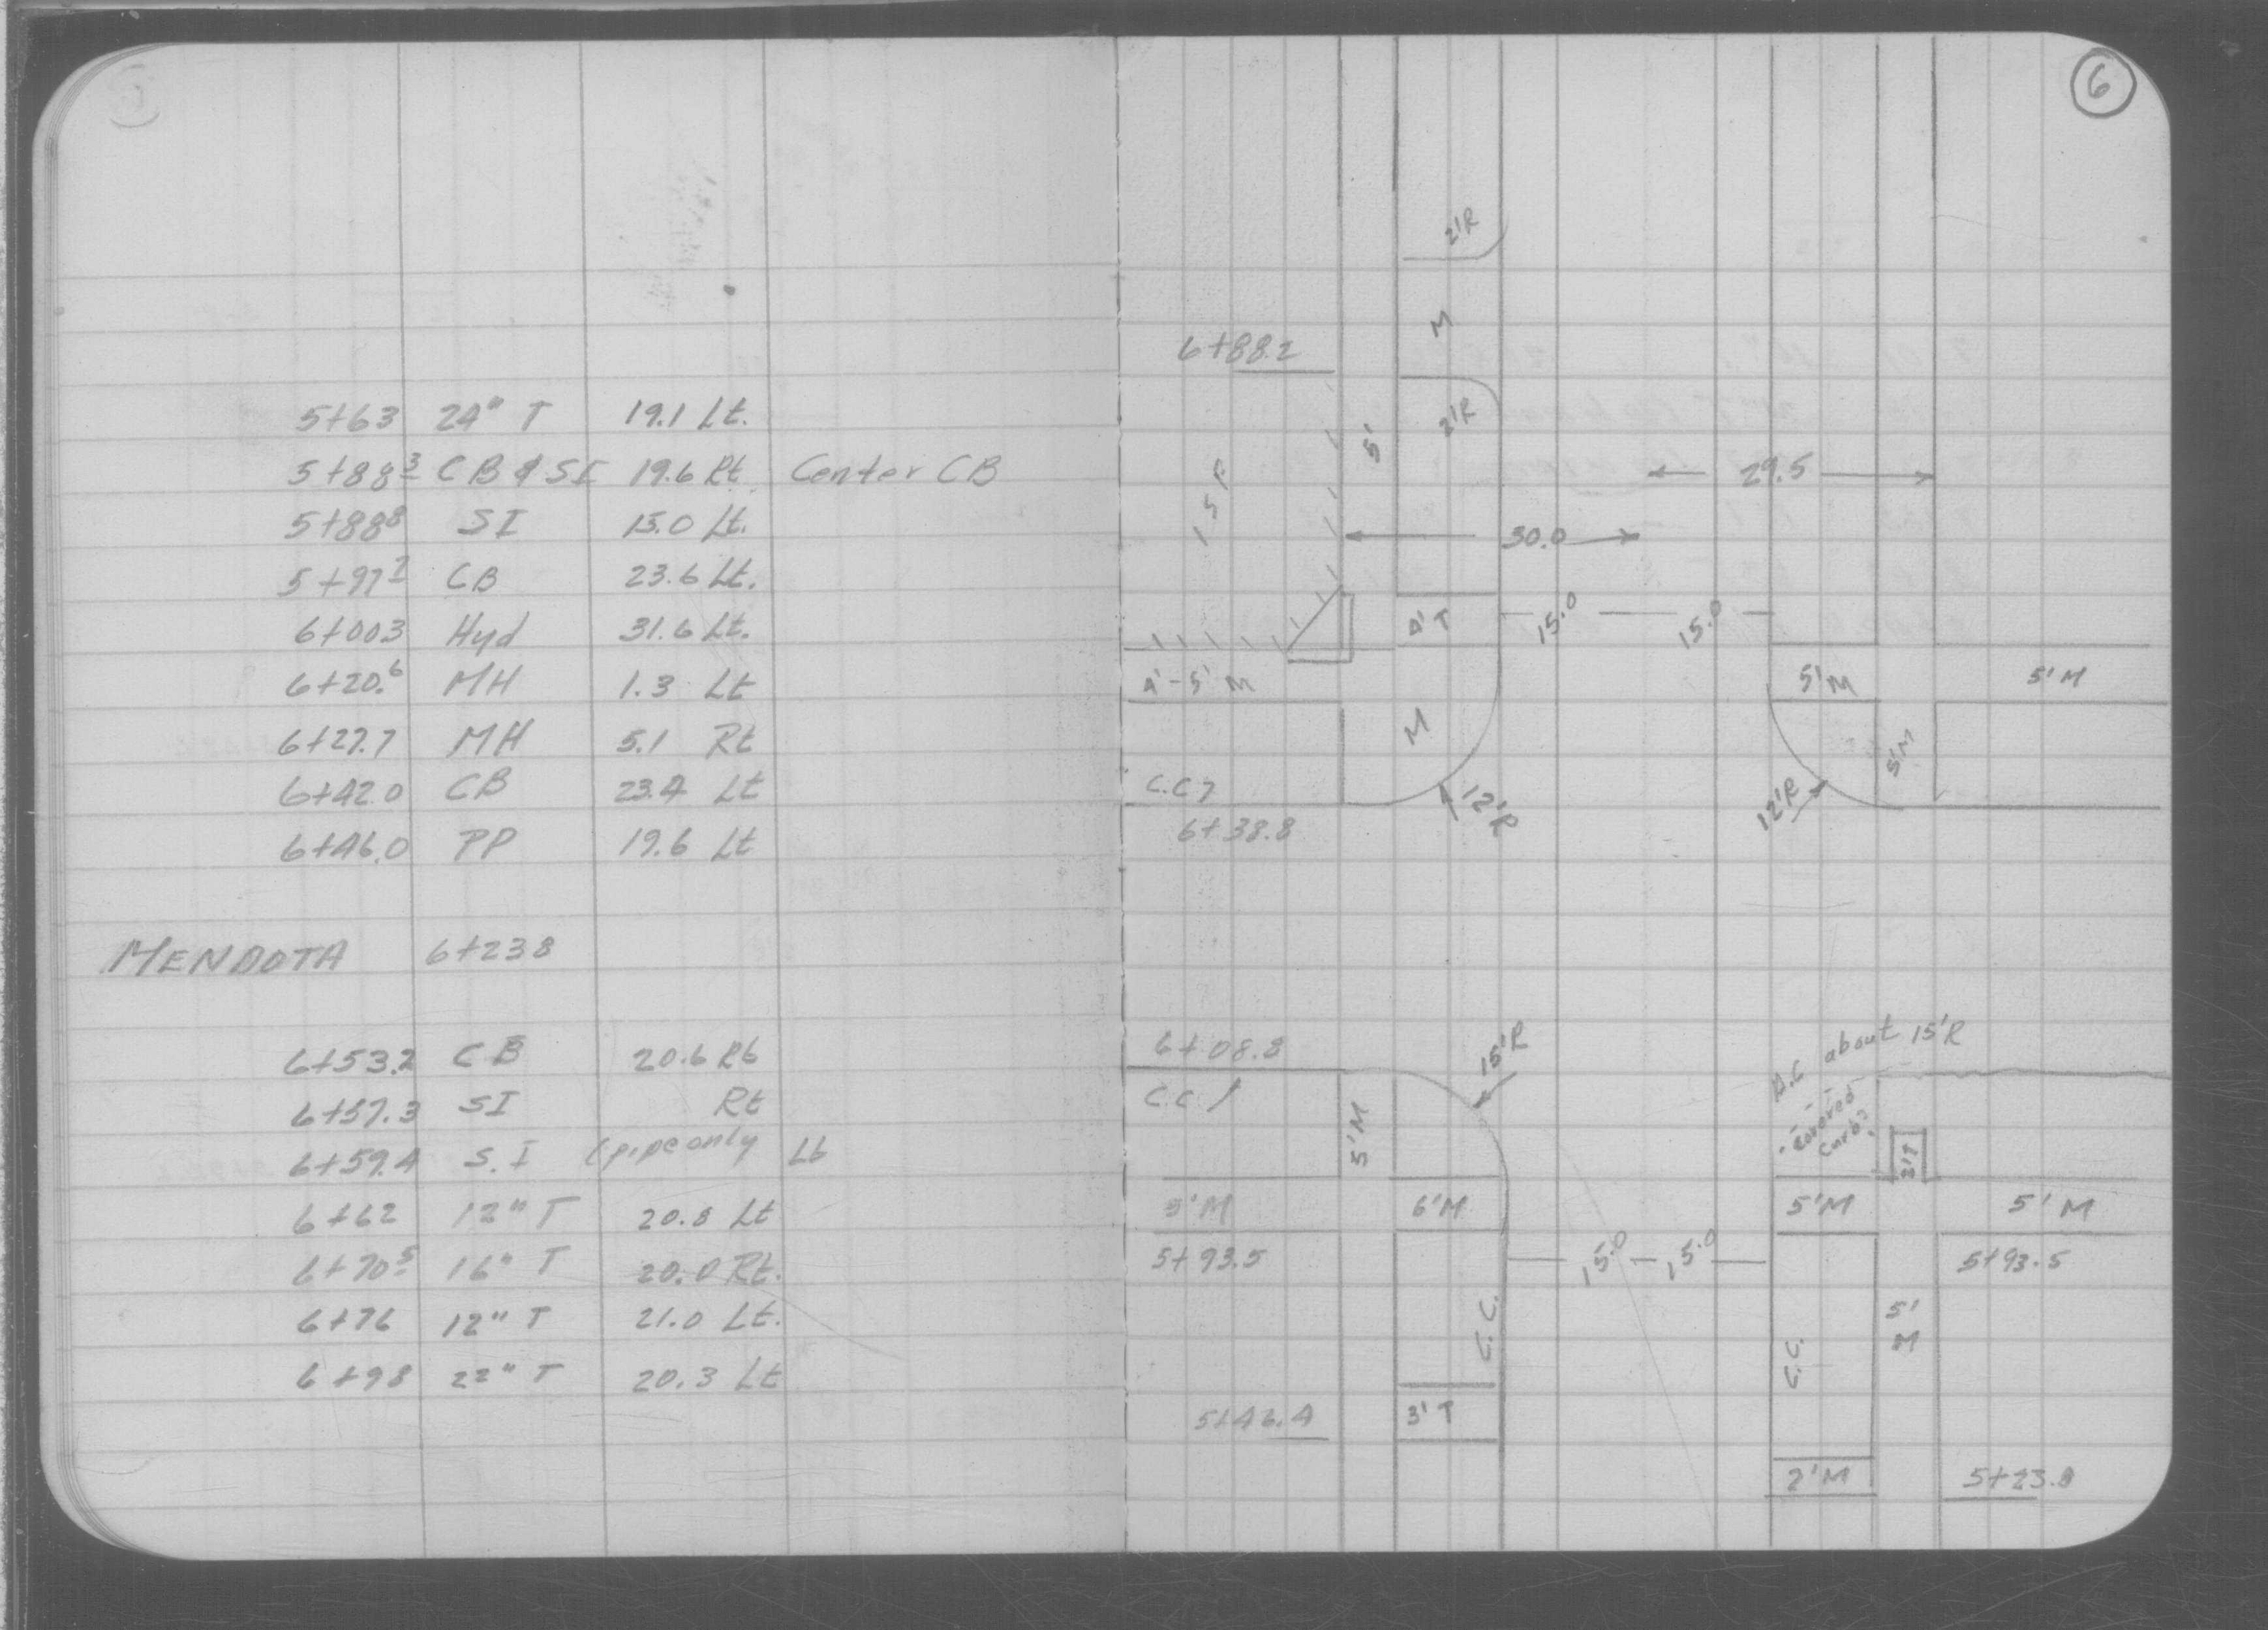 6
5+63 24" T 19.1 Lt.
5+88³ CB & SI 19.6 Rt Center CB
5+88⁸ SI 15.0 Lt.
5+97² CB 23.6 Lt.
6+003 Hyd 31.6 Lt.
6+20.⁶ MH 1.3 Lt
6+27.7 MH 5.1 Rt
6+42.0 CB 23.4 Lt
6+46.0 PP 19.6 Lt
MENDOTA 6+238
6+53.2 CB 20.6 Rt
6+57.3 SI Rt
6+59.4 S.I (pipe only Lt
6+62 12" T 20.8 Lt
6+70⁵ 16" T 20.0 Rt.
6+76 12" T 21.0 Lt.
6+98 22" T 20.3 Lt
2'R
M
6+88.2
2'R
5'
1 S F
29.5
30.0
4' T
15.0
15.0
4'-5' M
5'M
5'M
M
5'M
C.C
12'R
12'R
6+38.8
6+08.8
15'R
A.C about 15'R
C.C.
5'M
covered
curb?
5'M
6'M
5'M
5'M
5+93.5
15.0
15.0
5+93.5
C.C.
C.C.
5'
M
5+46.4
3' T
2'M
5+23.8